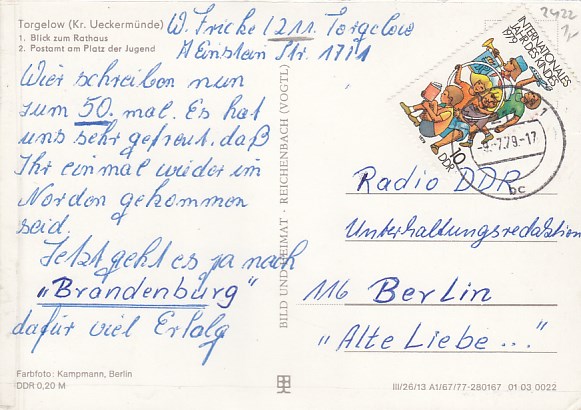 Torgelow (Kr. Ueckermünde)
1. Blick zum Rathaus
2. Postamt am Platz der Jugend
W. Fricke / 211. Torgelow
A Einstein Str. 17/1
Wier schreiben nun
zum 50. mal. Es hat
uns sehr gefreut, daß
Ihr einmal wieder im
Norden gekommen
seid.
Jetzt geht es ja nach
"Brandenburg"
dafür viel Erfolg
Farbfoto: Kampmann, Berlin
DDR 0,20 M
BILD UND HEIMAT · REICHENBACH (VOGTL)
2422
1,-
INTERNATIONALES
JAHR DES KINDES
1979
10
DDR
7.79.-17
bc
Radio DDR
Unterhaltungsredaktion
116 Berlin
"Alte Liebe..."
III/26/13 A1/67/77-280167 01 03 0022